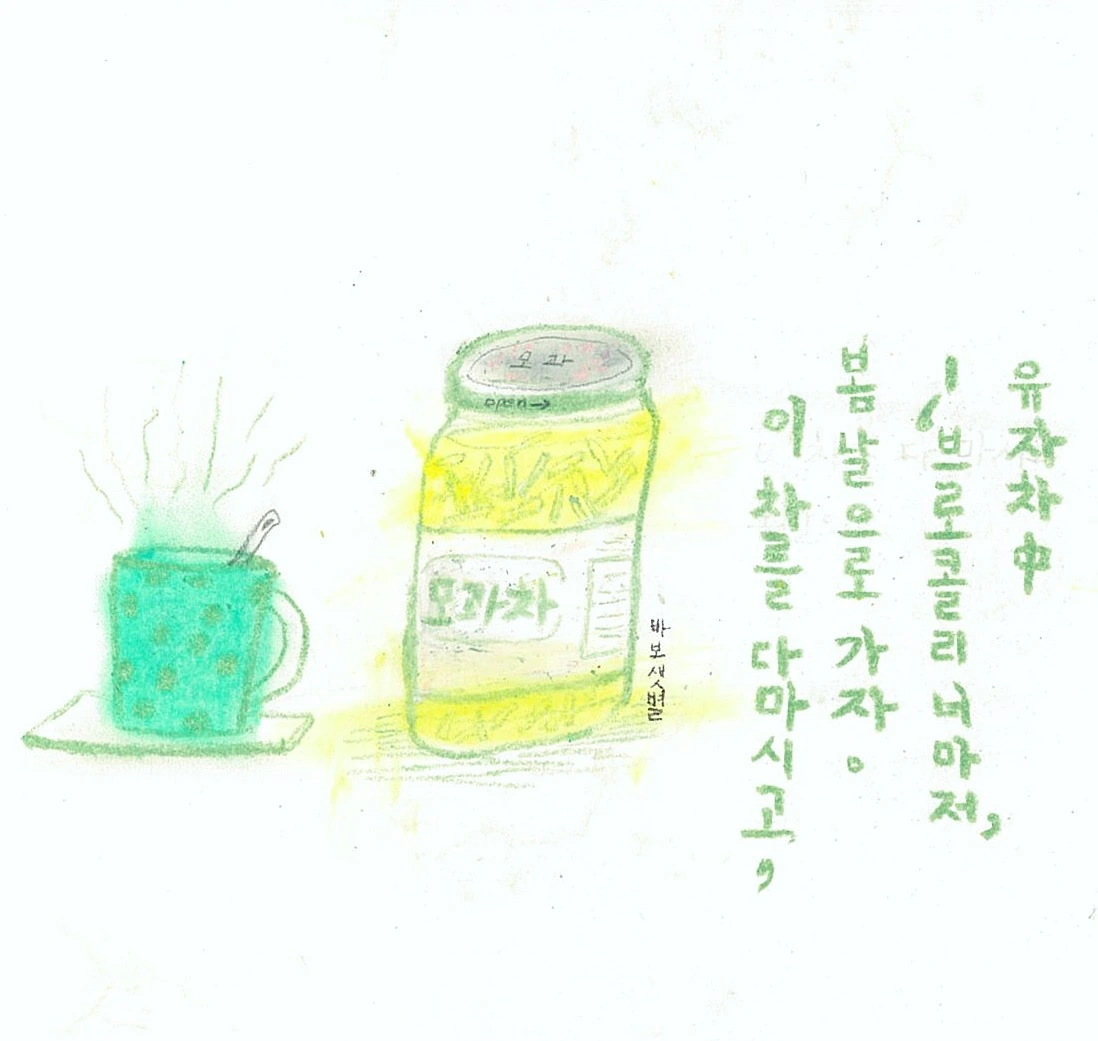 모과
open→
모과차
바보샛별
이 차를 다 마시고,
봄날으로 가자。
'브로콜리 너마저,
유자차中